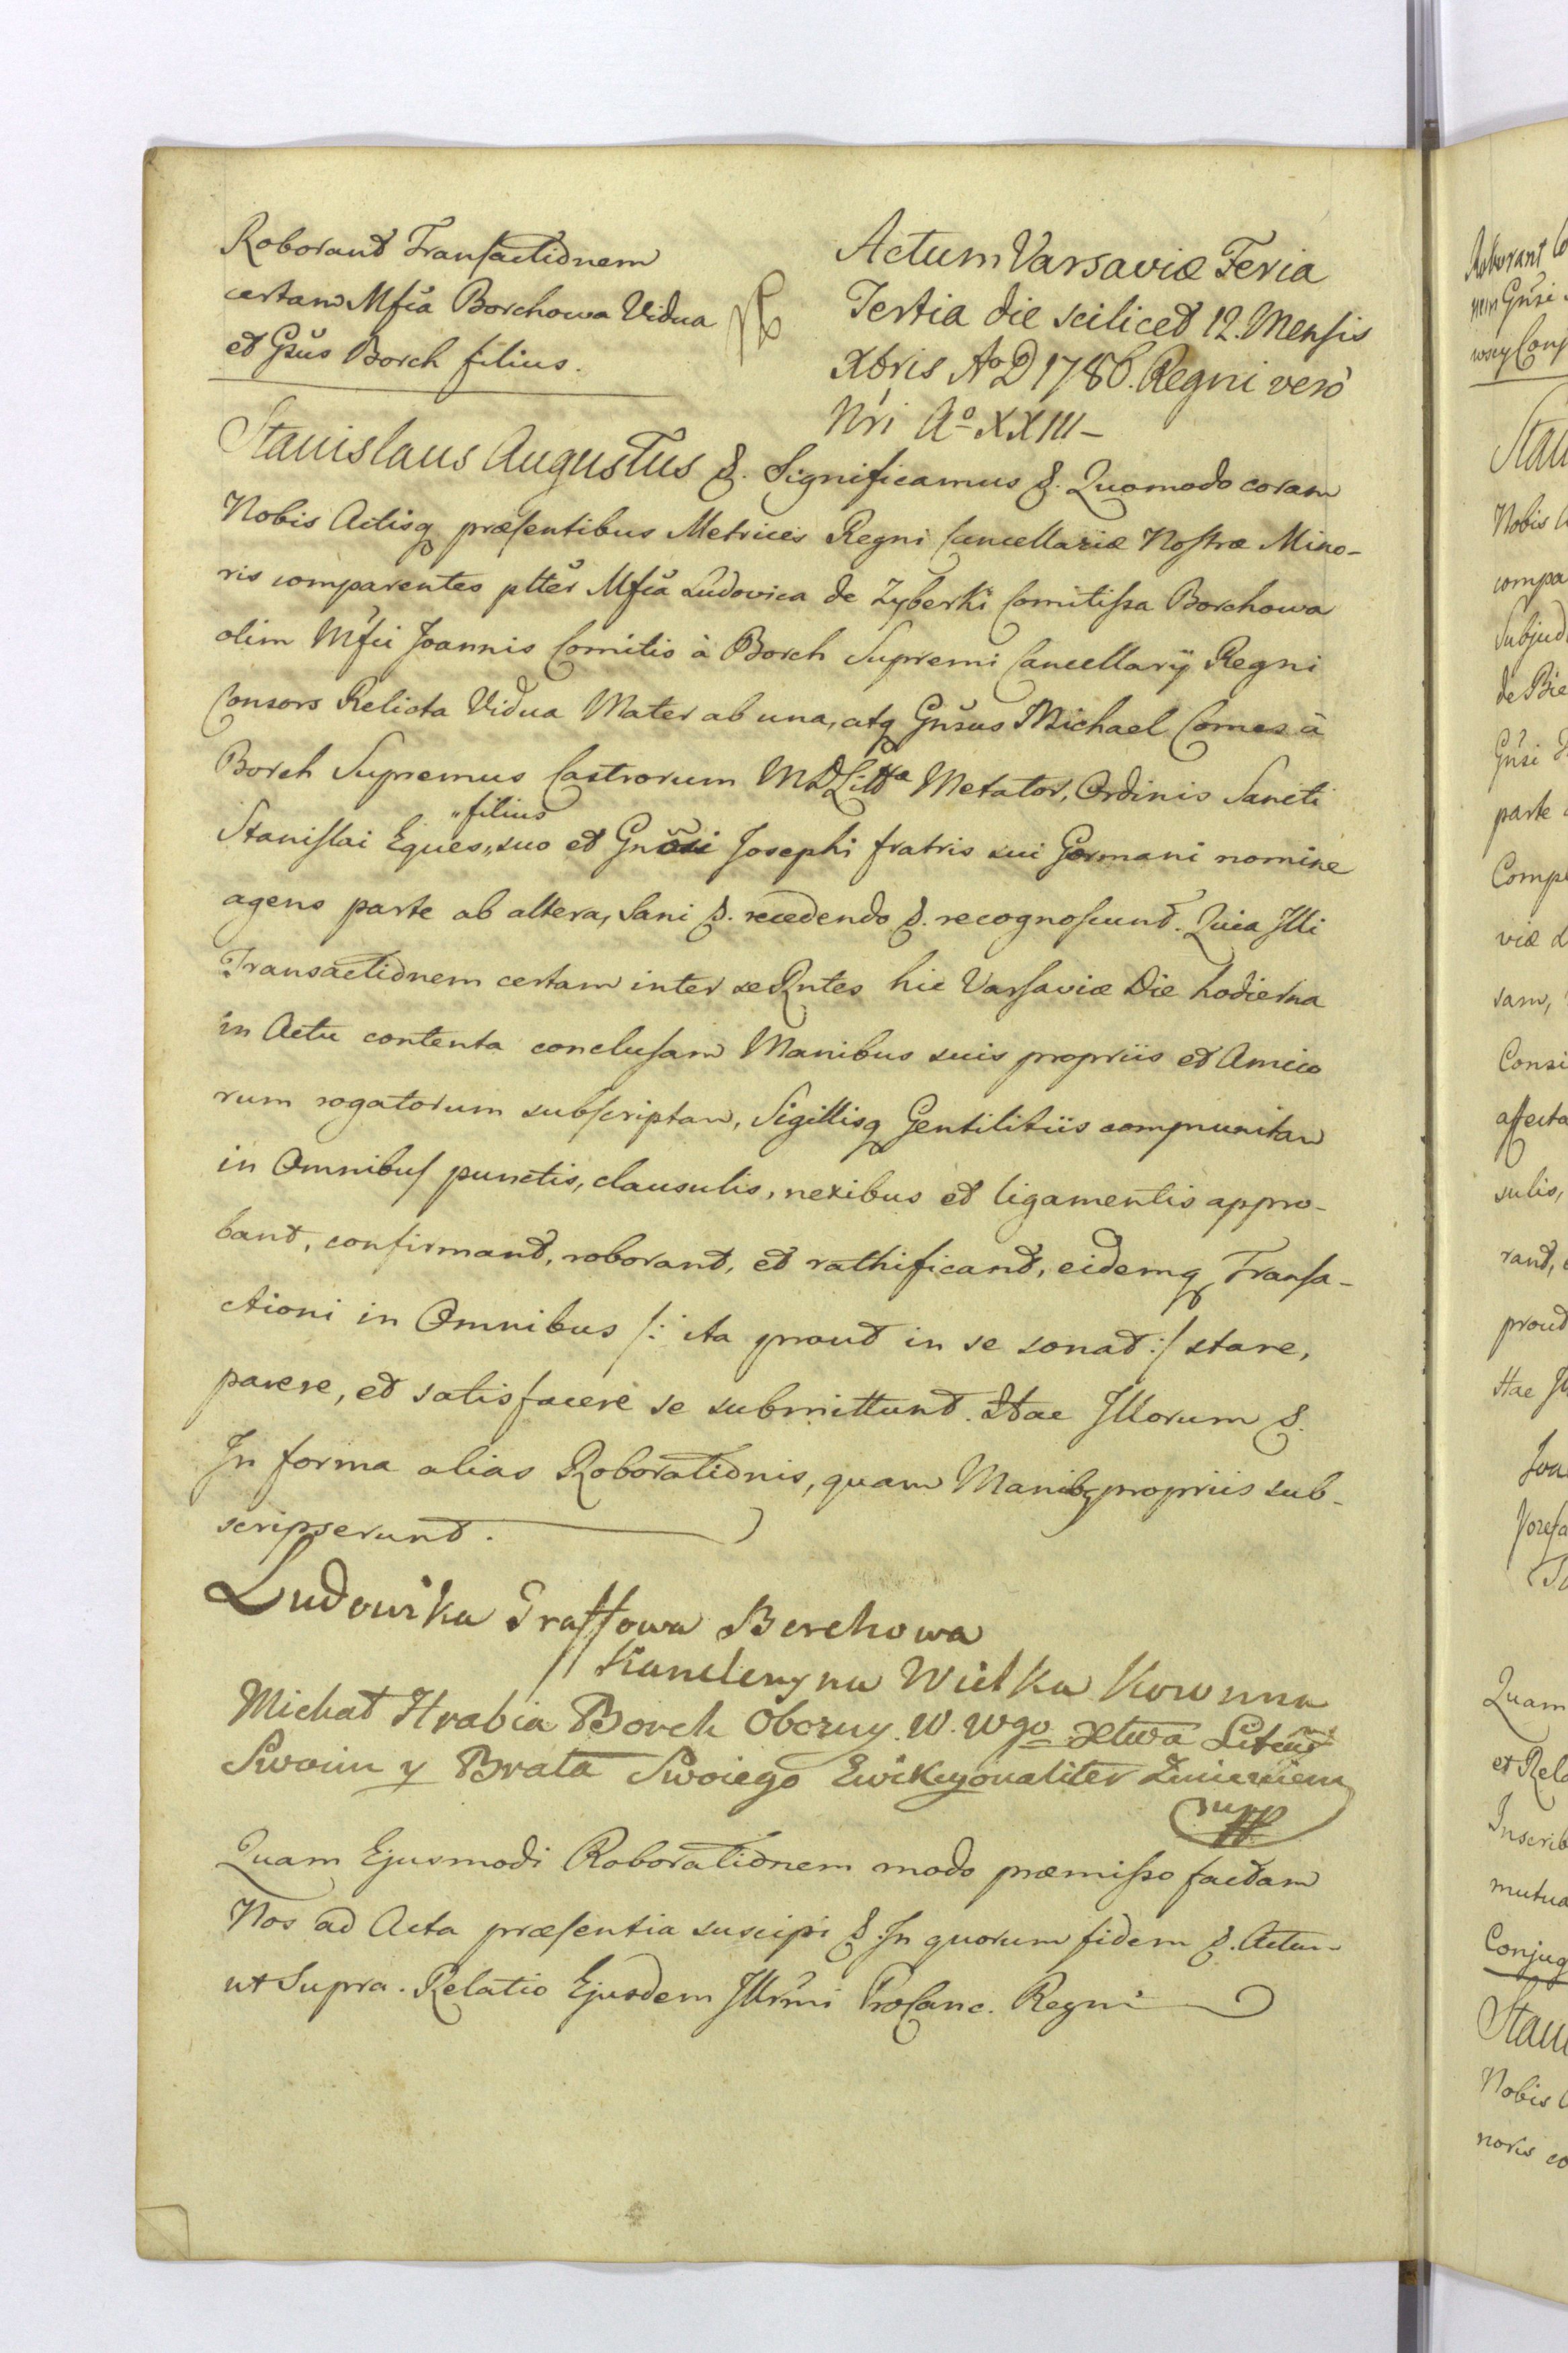 Roborant Transactionem
certam Mfca Borchowa Vidua
et Gsus Borch filius.
Actum Varsaviæ Feria
Tertia die scilicet 12. Mensis
Xbris Ao D 1786. Regni verò
Nri Ao XXIII –
Stanislaus Augustus &. Significamus &. Quomodo coram
Nobis Actisq præsentibus Metrices Regni Cancellariæ Nostræ Mino-
ris comparentes pltter Mfca Ludovica de Zyberki Comitissa Borchowa
olim Mfci Joannis Comitis à Borch Supremi Cancellarij Regni
Consors Relicta Vidua Mater ab una, atq Gnsus Michael Comes à
Borch Supremus Castrorum MDLittæ Metator, Ordinis Sancti
Stanislai Eques,, "filius suo et Gnosi Josephi fratris sui Germani nomine
agens parte ab altera, Sani &. recedendo &. recognoscunt. Quia Illi
Transactionem certam inter se Rntes hic Varsaviæ Die hodierna
in Actu contenta conclusam Manibus suis propriis et Amico
rum rogatorum subscriptam, Sigillisq Gentilitiis communitam
in Omnibus punctis, clausulis, nexibus et ligamentis appro-
bant, confirmant, roborant, et rathificant, eidemq Transa-
ctioni in Omnibus /: ita prout in se sonat :/ stare,
parere, et satisfacere se submittunt. Hac Illorum &.
In forma alias Roborationis, quam Manibq propriis sub-
scripserunt.
Ludowika Graffowa Borchowa
Kanclerzyna Wielka Koronna
Michał Hrabia Borch Oboźny W. Wgo Xtwa Litewo
Swoim y Brata Swoiego Ewikcyonaliter Imieniem
mpp
Quam Ejusmodi Roborationem modo præmisso factam
Nos ad Acta præsentia suscipi &. In quorum fidem &. Actum
ut Supra. Relatio Ejusdem Illrmi ProCanc. Regni
Roborant
nem Gnsi
Stau
Nobis
compa
Subjud
de Bie
Gnsi
parte
Comp
viæ
sam,
Consi
affecta
sulis,
rant,
prout
Hac
Joa
Jozefa
Quam
et Rela
Inscrib
mutua
Conjug
Stau
Nobis
noris co